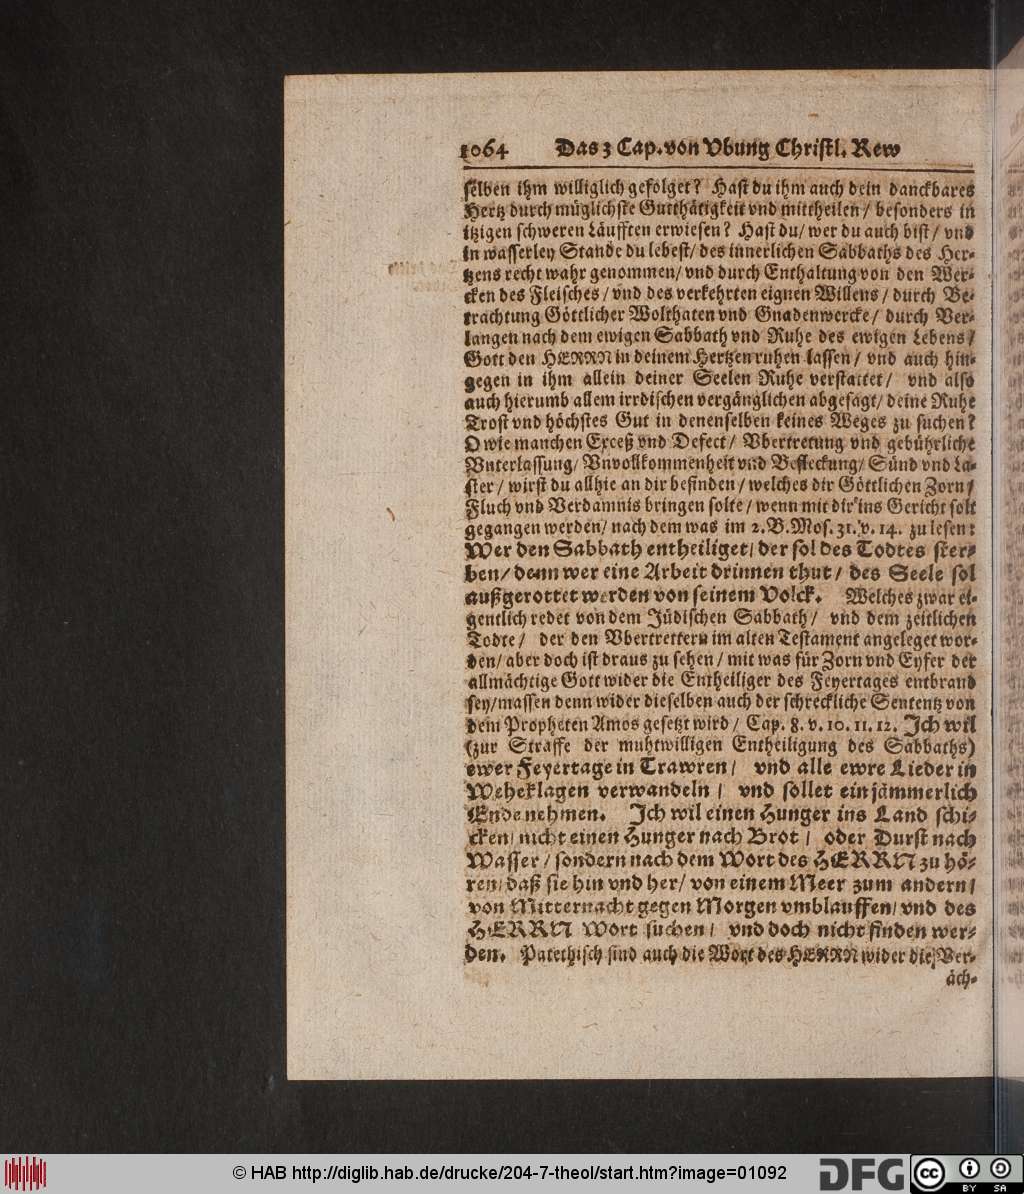 1064 Das 3 Cap. von Vbung Christl. Rew
selben ihm williglich gefolget? Hast du ihm auch dein danckbares
Hertz durch müglichste Gutthätigkeit vnd mittheilen / besonders in
itzigen schweren Läufften erwiesen? Hast du / wer du auch bist / vnd
in wasserley Stande du lebest / des innerlichen Sabbaths des Her-
tzens recht wahr genommen / vnd durch Enthaltung von den Wer-
cken des Fleisches / vnd des verkehrten eignen Willens / durch Be-
trachtung Göttlicher Wolthaten vnd Gnadenwercke / durch Ver-
langen nach dem ewigen Sabbath vnd Ruhe des ewigen Lebens /
Gott den HERRN in deinem Hertzen ruhen lassen / vnd auch hin-
gegen in ihm allein deiner Seelen Ruhe verstattet / vnd also
auch hierumb allem irrdischen vergänglichen abgesagt / deine Ruhe
Trost vnd höchstes Gut in denenselben keines Weges zu suchen?
O wie manchen Exceß vnd Defect / Vbertretung vnd gebührliche
Vnterlassung / Vnvollkommenheit vnd Befleckung / Sünd vnd La-
ster / wirst du allhie an dir befinden / welches dir Göttlichen Zorn /
Fluch vnd Verdamnis bringen solte / wenn mit dir ins Gericht solt
gegangen werden / nach dem was im 2. B. Mos. 31. v. 14. zu lesen:
Wer den Sabbath entheiliget / der sol des Todtes ster-
ben / denn wer eine Arbeit drinnen thut / des Seele sol
außgerottet werden von seinem Volck. Welches zwar ei-
gentlich redet von dem Jüdischen Sabbath / vnd dem zeitlichen
Todte / der den Vbertrettern im alten Testament angeleget wor-
den / aber doch ist draus zu sehen / mit was für Zorn vnd Eyfer der
allmächtige Gott wider die Entheiliger des Feyertages entbrand
sey / massen denn wider dieselben auch der schreckliche Sententz von
dem Propheten Amos gesetzt wird / Cap. 8. v. 10. 11. 12. Ich wil
(zur Straffe der muhtwilligen Entheiligung des Sabbaths)
ewer Feyertage in Trawren / vnd alle ewre Lieder in
Weheklagen verwandeln / vnd sollet ein jämmerlich
Ende nehmen. Ich wil einen Hunger ins Land schi-
cken / nicht einen Hunger nach Brot / oder Durst nach
Wasser / sondern nach dem Wort des HERRN zu hö-
ren / daß sie hin vnd her / von einem Meer zum andern /
von Mitternacht gegen Morgen vmblauffen / vnd des
HERRN Wort suchen / vnd doch nicht finden wer-
den. Patethisch sind auch die Wort des HERRN wider die Ver-
äch-
© HAB http://diglib.hab.de/drucke/204-7-theol/start.htm?image=01092
DFG
cc BY SA